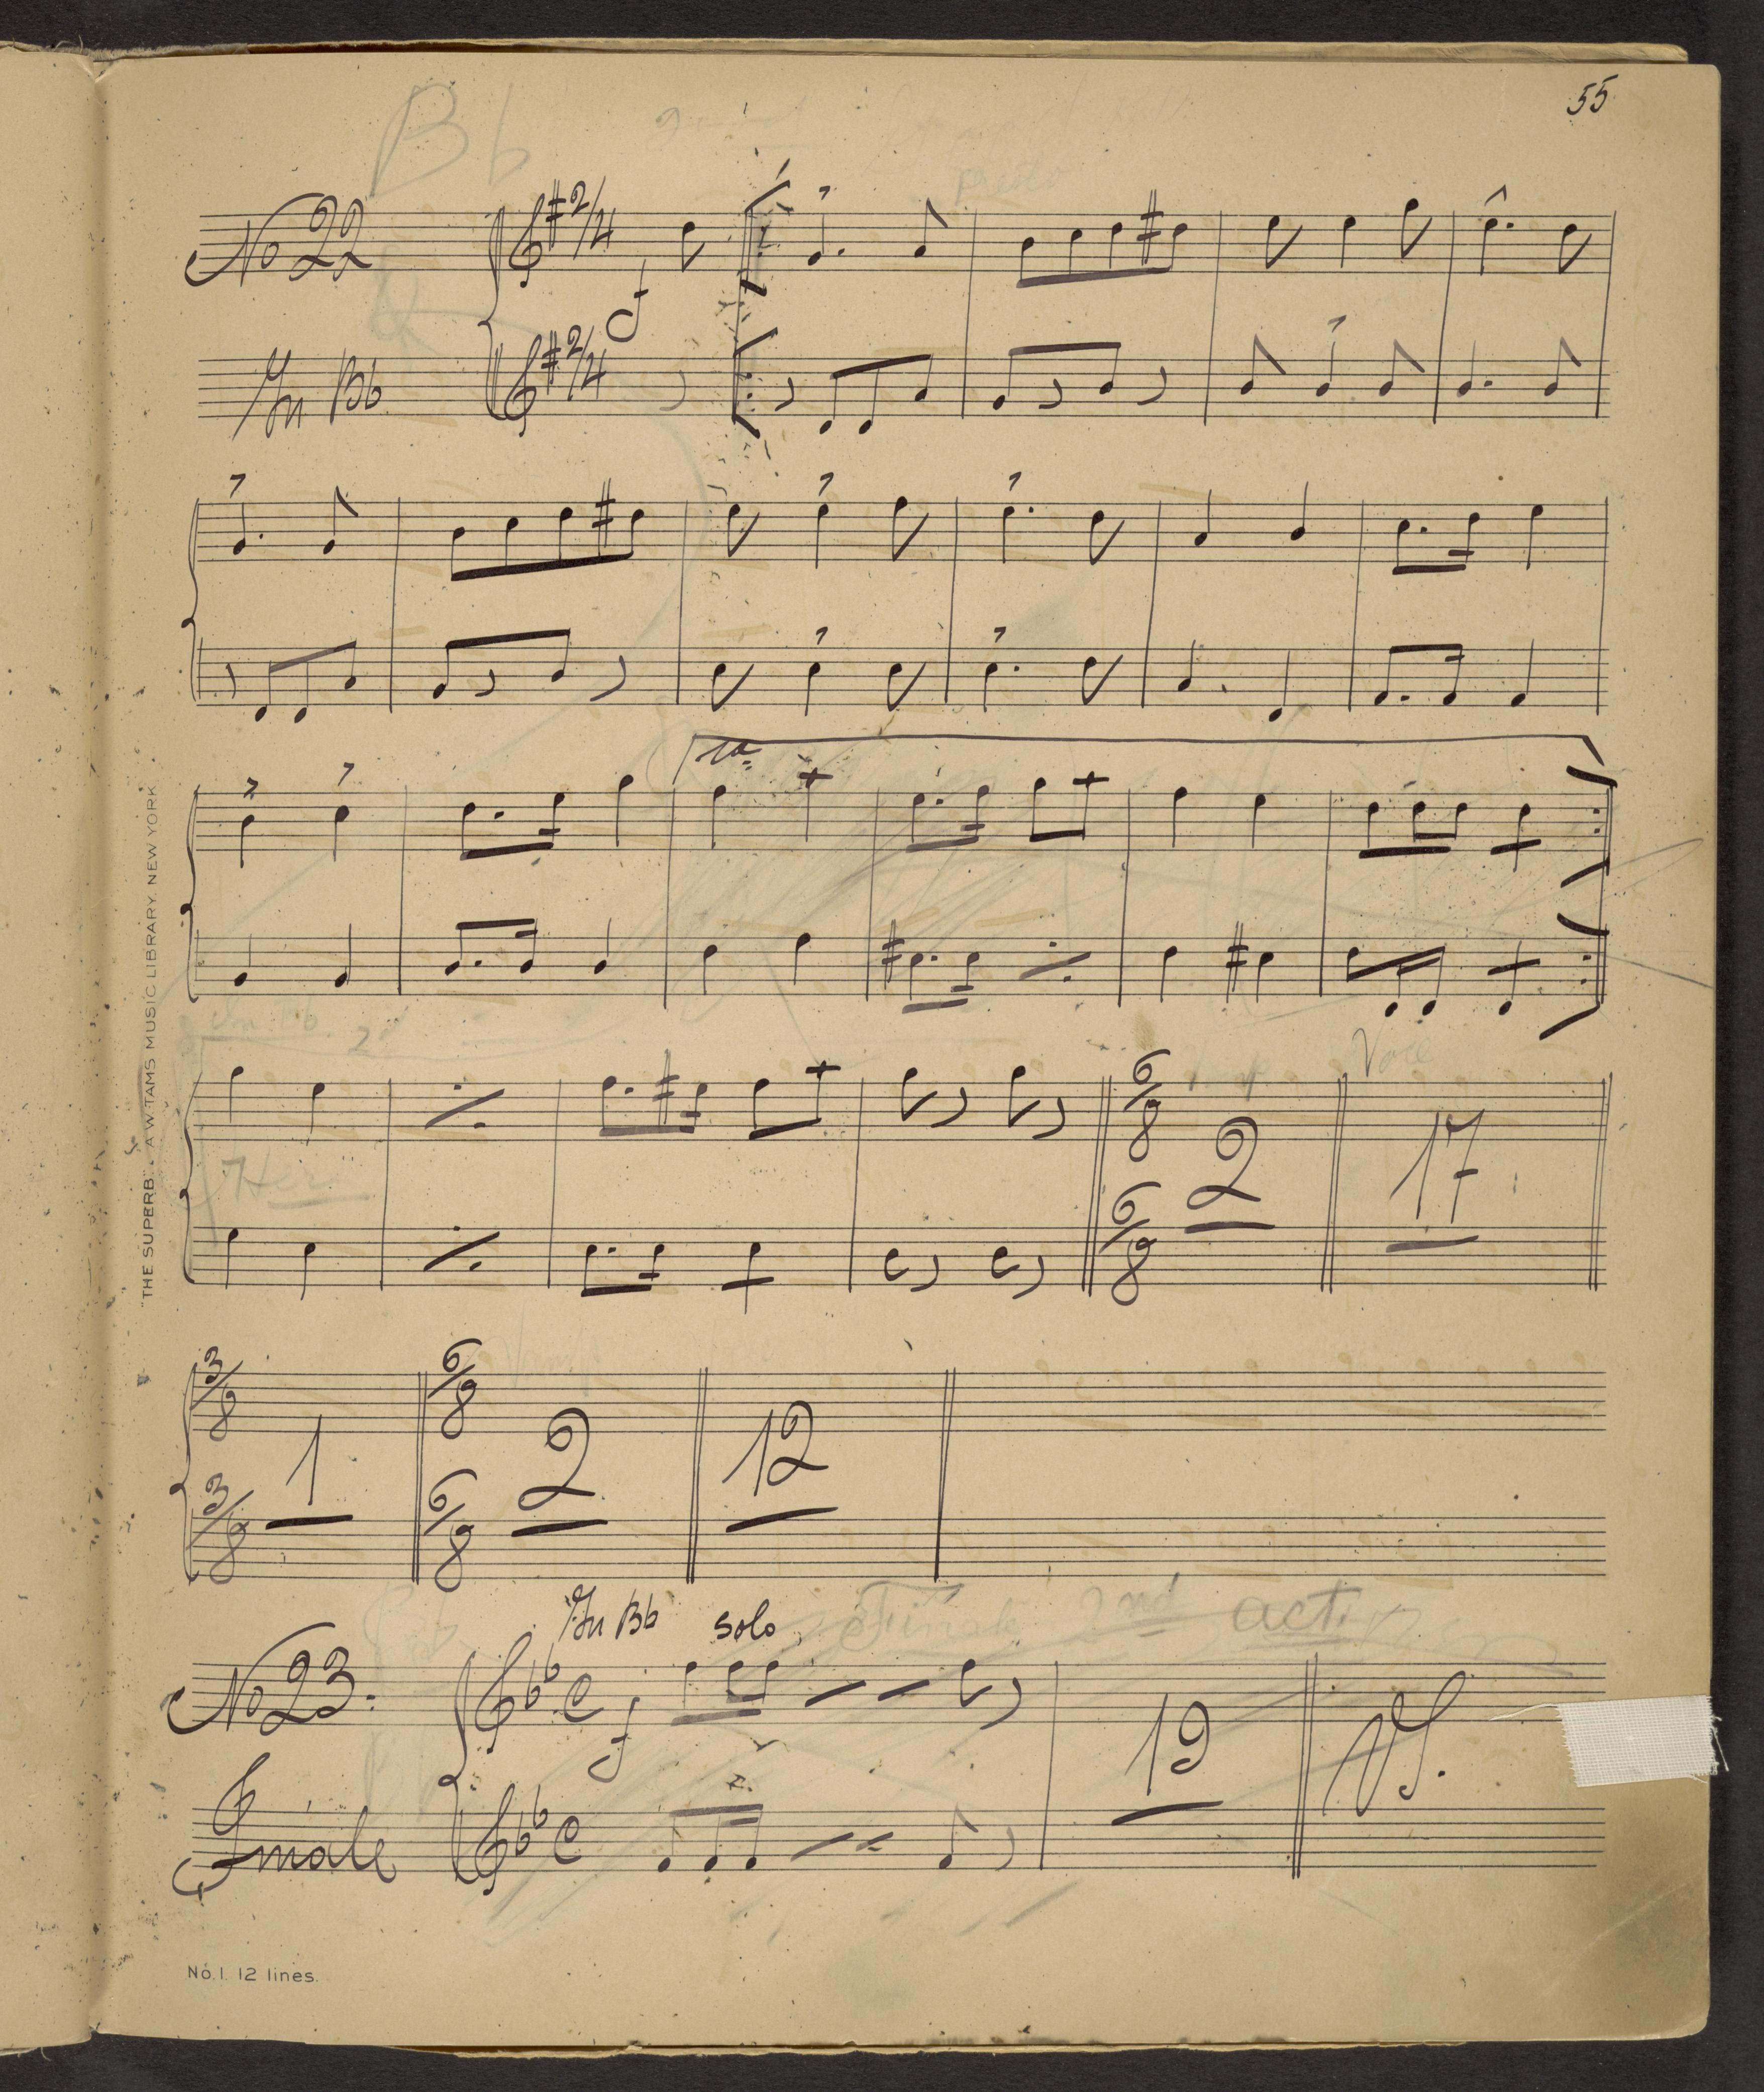 55
Bb
Presto
No 22
2/4
f
In Bb
2/4
1a
In Bb 2
Her
6/8
2
Voce
17
6/8
3/8
1
6/8
2
12
3/8
6/8
In Bb solo Finale 2nd act
No 23.
C
f
19
VS.
Finale
C
"THE SUPERB". A.W. TAMS MUSIC LIBRARY. NEW YORK.
No. 1. 12 lines.